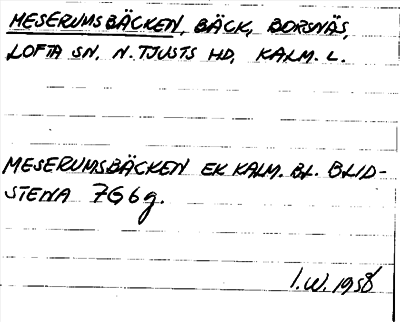 MESERUMSBÄCKEN, BÄCK, BORSNÄS,
LOFTA SN, N. TJUSTS HD, KALM. L.
MESERUMSBÄCKEN EK KALM. BL. BLID-
STENA 7G6g.
I.W. 1958